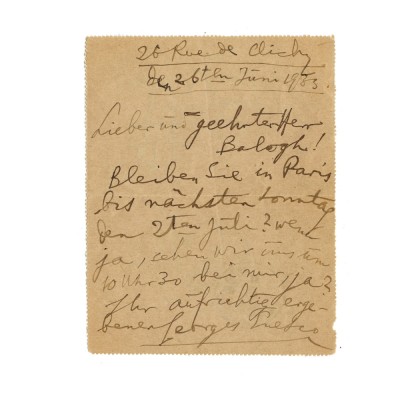 26 Rue de Clichy
den 26ten Juni 19
Lieber und geehrter Herr
Balogh!
Bleiben Sie in Paris
bis nächsten Sonntag
den 2ten Juli? wenn
ja, sehen wir uns um
10 Uhr 30 bei mir, ja?
Ihr aufrichtig erge-
bener Georges